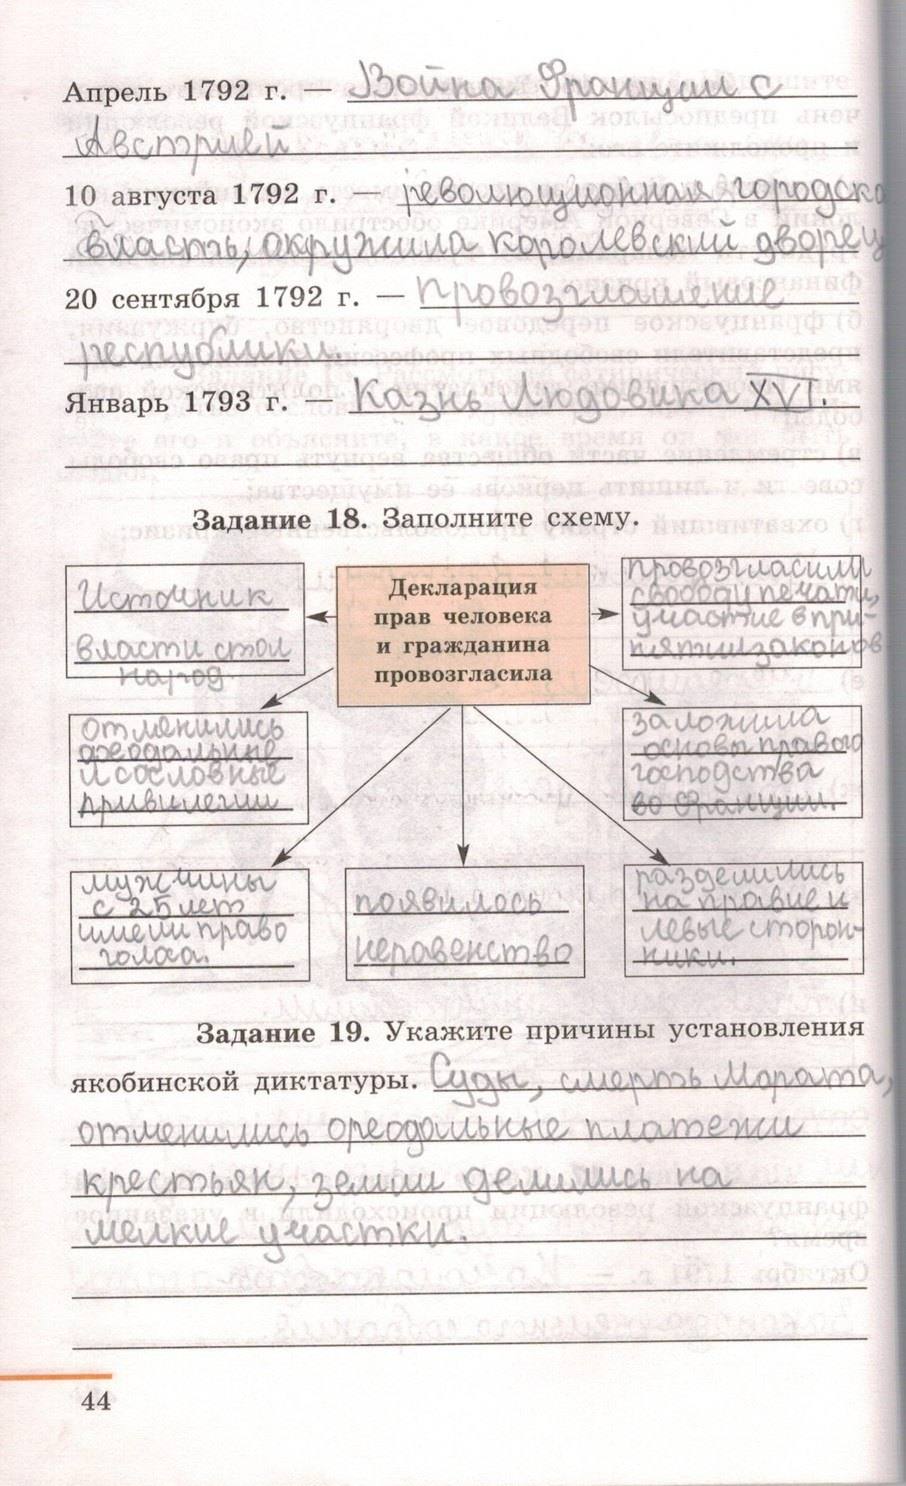 Апрель 1792 г. — Война Франции с
Австрией
10 августа 1792 г. — революционная городска
власть, окружила королевский дворец
20 сентября 1792 г. — провозглашение
республики.
Январь 1793 г. — Казнь Людовика XVI.
Задание 18. Заполните схему.
Источник
власти стол
народ
Декларация
прав человека
и гражданина
провозгласила
провозгласили
свободу печати,
участие в при-
нятии законов
отменились
феодальные
и сословные
привилегии
заложила
основы правого
господства
во Франции.
мужчины
с 25 лет
имели право
голоса.
появилось
неравенство
разделились
на правые и
левые сторон-
ники.
Задание 19. Укажите причины установления
якобинской диктатуры. Суды, смерть Марата,
отменились феодальные платежи
крестьян, земли делились на
мелкие участки.
44